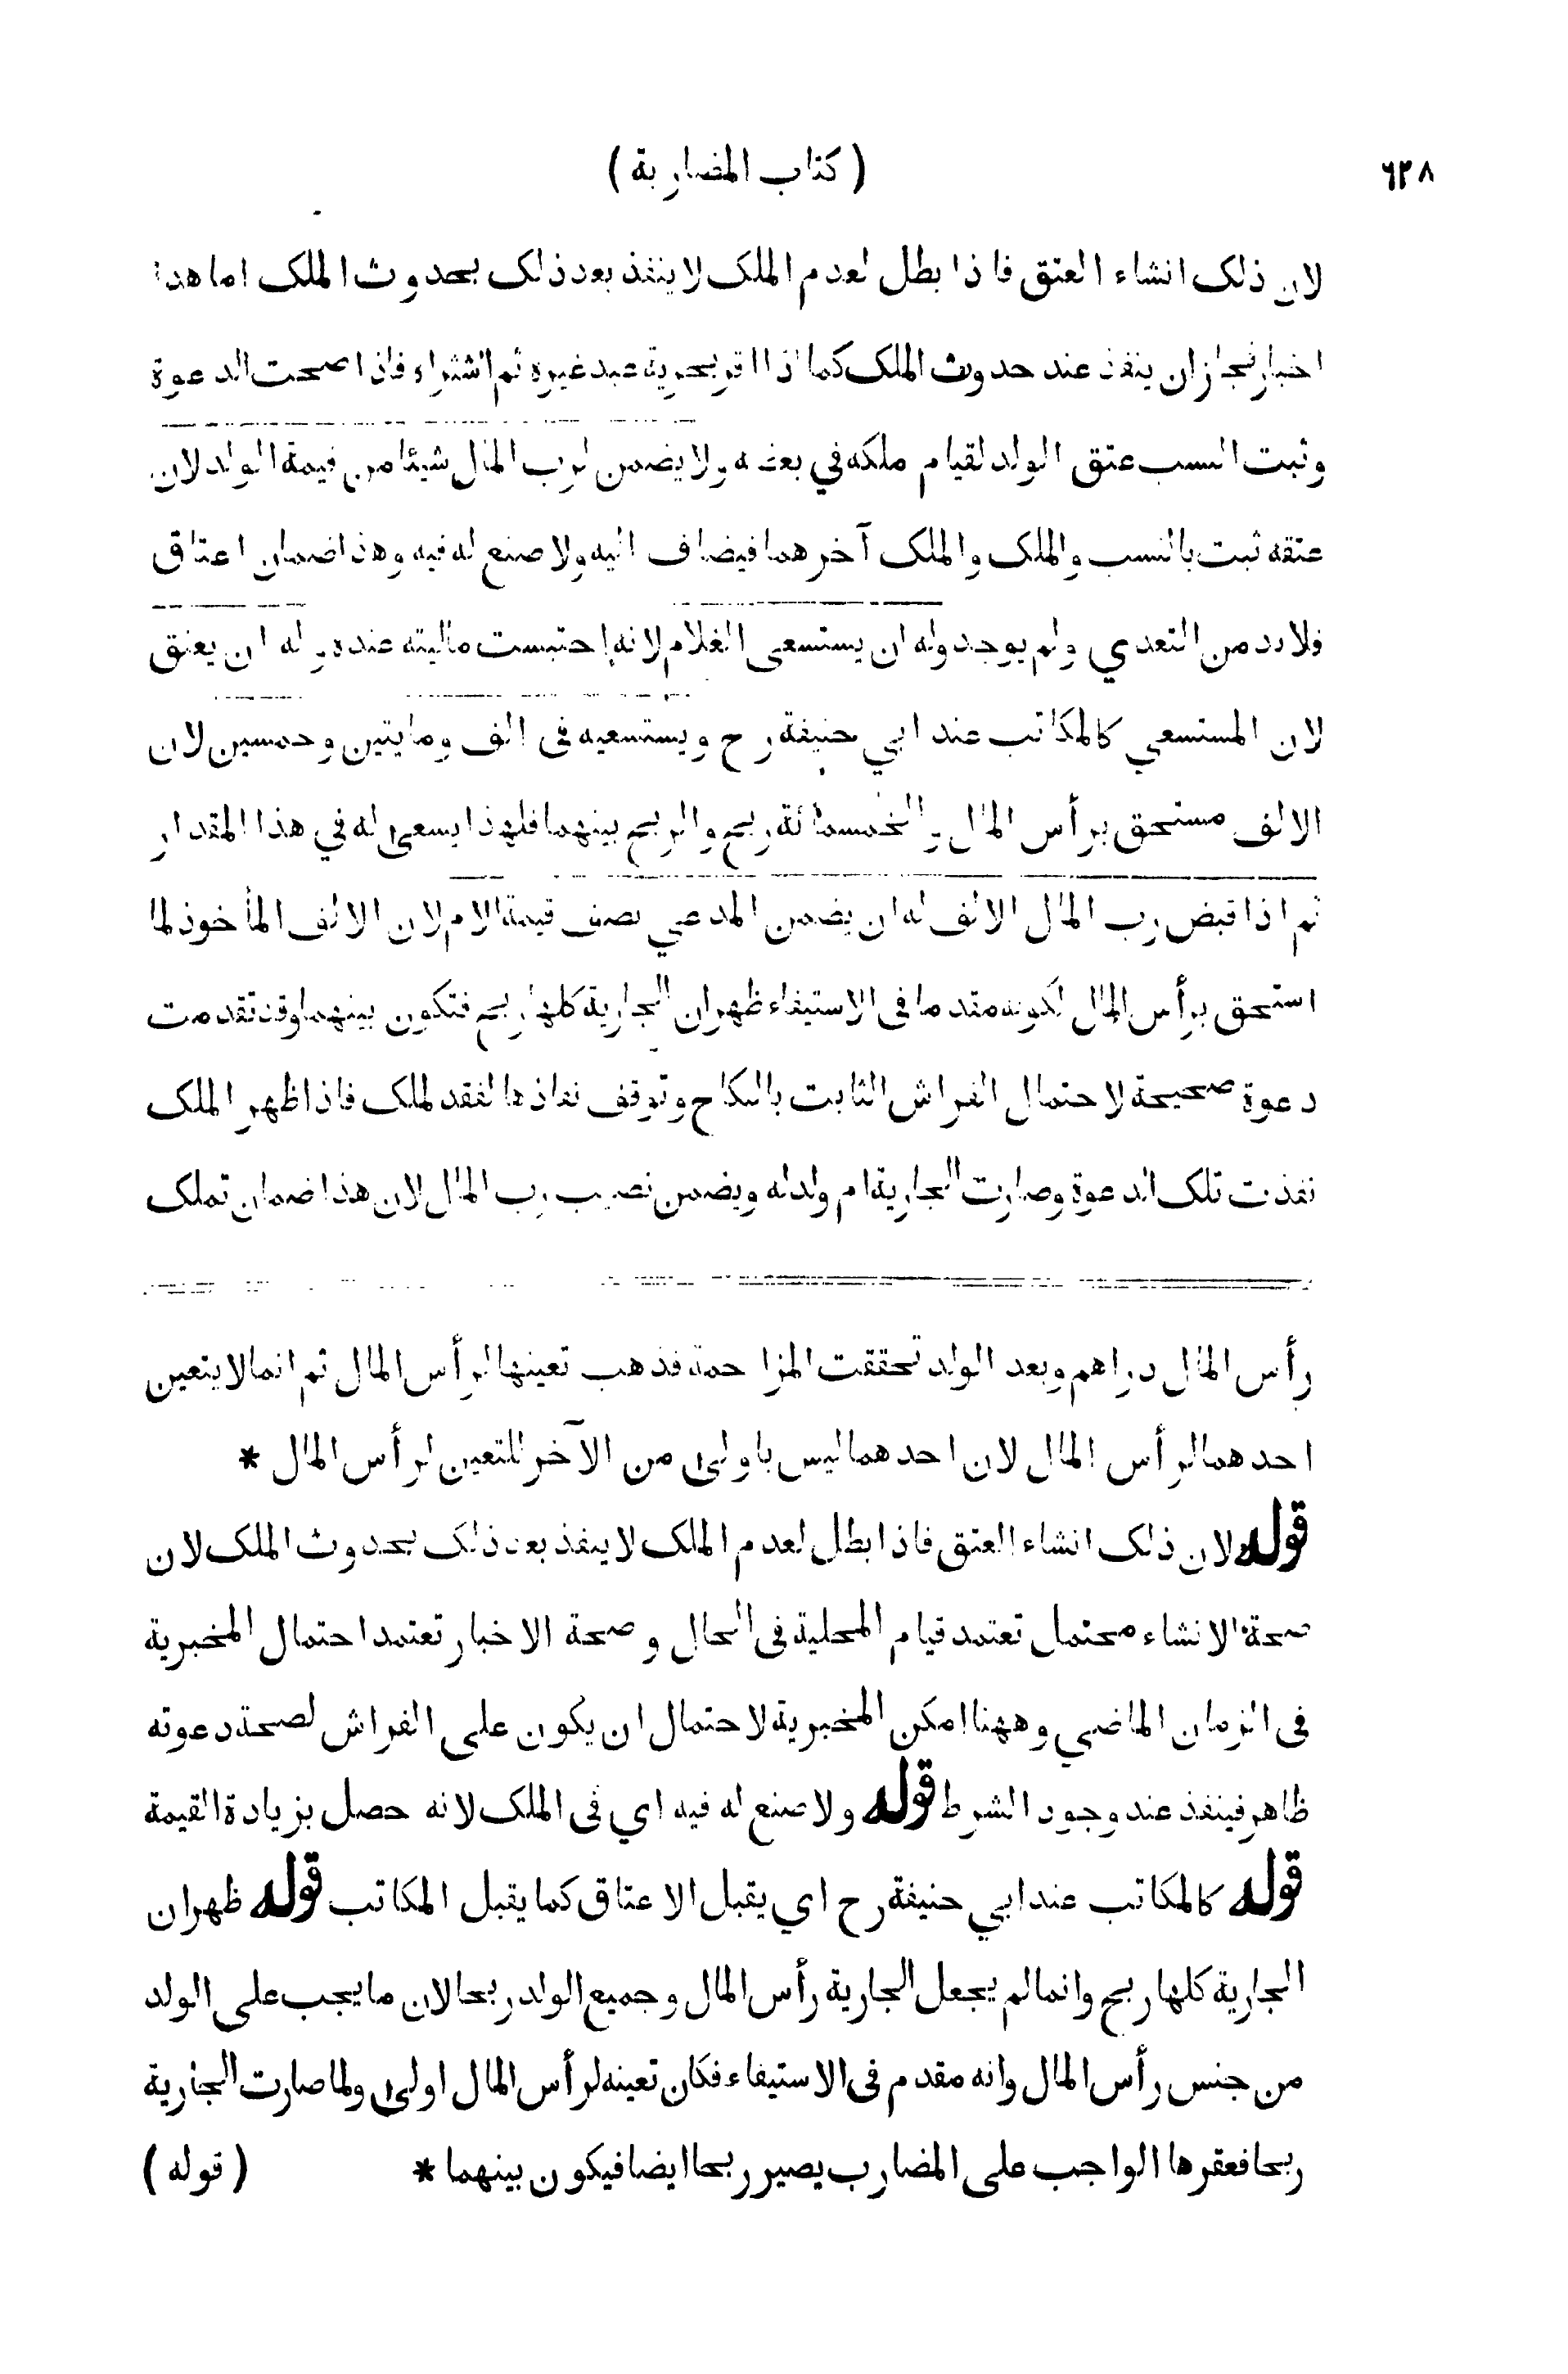 ٦٢٨
( كتاب المضاربة )
لان ذلك انشاء العتق فاذا بطل لعدم الملك لا ينفذ بعد ذلك بحدوث الملك اما هذا
اخبار فجاز ان ينفذ عند حدوث الملك كما اذا اقر بحرية عبد غيره ثم اشتراه فاذا صحت الدعوة
وثبت النسب عتق الولد لقيام ملكه في بعضه ولا يضمن لرب المال شيئا من قيمة الولد لان
عتقه ثبت بالنسب والملك والملك آخرهما فيضاف اليه ولا صنع له فيه وهذا ضمان اعتاق
فلا بد من التعدي ولم يوجد وله ان يستسعى الغلام لانه إحتبست ماليته عنده وله ان يعتق
لان المستسعي كالمكاتب عند ابي حنيفة رح ويستسعيه فى الف ومايتين وخمسين لان
الالف مستحق برأس المال والخمسمائة ربح والربح بينهما فلهذا يسعى له في هذا المقدار
ثم اذا قبض رب المال الالف له ان يضمن المدعي نصف قيمة الام لان الالف المأخوذ لما
استحق برأس المال لكونه مقدما فى الاستيفاء ظهر ان الجارية كلها ربح فتكون بينهما وقد تقدمت
دعوة صحيحة لاحتمال الفراش الثابت بالنكاح وتوقف نفاذها لفقد لملك فاذا ظهر الملك
نفذت تلك الدعوة وصارت الجارية ام ولد له ويضمن نصيب رب المال لان هذا ضمان تملك
رأس المال دراهم وبعد الولد تحققت المزاحمة فذهب تعينها لرأس المال ثم انما لا يتعين
احدهما لرأس المال لان احدهما ليس باولى من الآخر للتعين لرأس المال *
قوله لان ذلك انشاء العتق فاذا بطل لعدم الملك لا ينفذ بعد ذلك بحدوث الملك لان
صحة الانشاء محتمل تعتمد قيام المحلية فى الحال وصحة الاخبار تعتمد احتمال المخبرية
فى الزمان الماضي وههنا امكن المخبرية لاحتمال ان يكون على الفراش لصحة دعوته
ظاهر فينفذ عند وجود الشرط قوله ولا صنع له فيه اي فى الملك لانه حصل بزيادة القيمة
قوله كالمكاتب عند ابي حنيفة رح اي يقبل الاعتاق كما يقبل المكاتب قوله ظهر ان
الجارية كلها ربح وانما لم يجعل الجارية رأس المال وجميع الولد ربحا لان ما يجب على الولد
من جنس رأس المال وانه مقدم فى الاستيفاء فكان تعينه لرأس المال اولى ولما صارت الجارية
ربحا فعقرها الواجب على المضارب يصير ربحا ايضا فيكون بينهما *
( قوله )